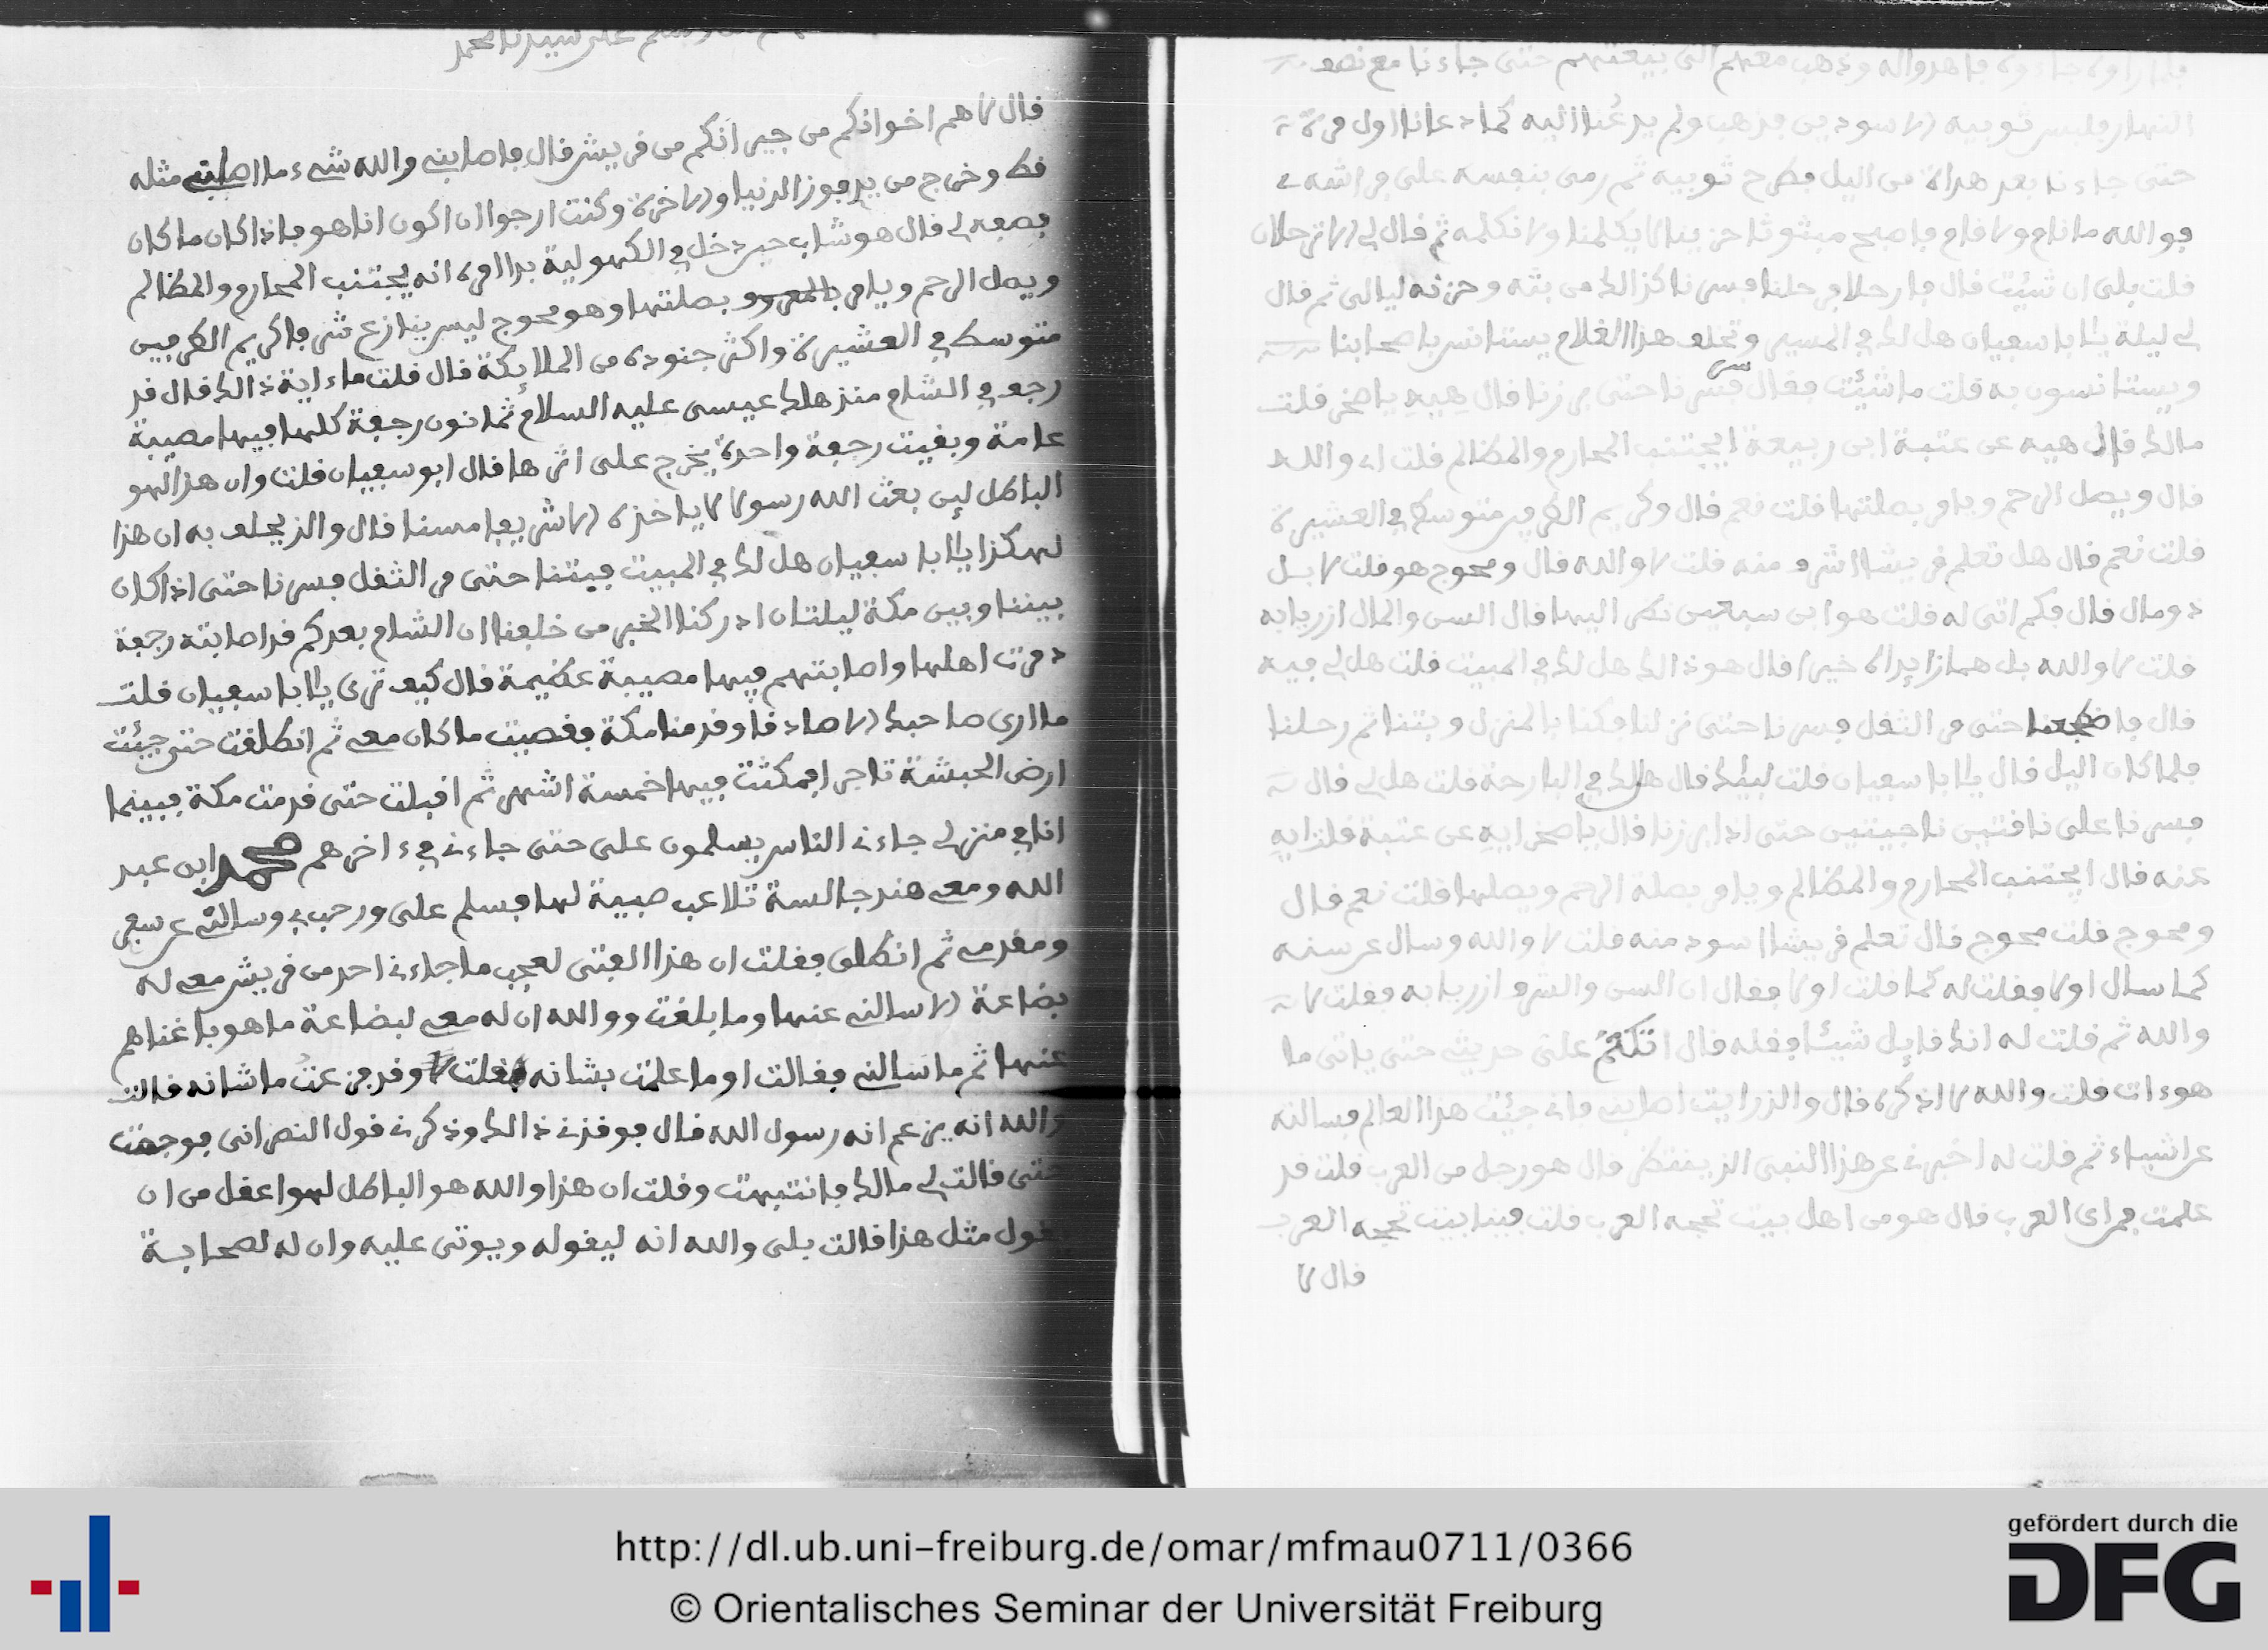 فلما راوه جاءوه فاهدوا له وذهب معهم الى بيعتهم حتى جاءنا مع نصف
النهار فلبس ثوبيه الاسودين فذهب ولم يدعنا اليه كما دعانا اول مرة
حتى جاءنا بعد هداة من اليل فطرح ثوبيه ثم رمى بنفسه على فراشه
فوالله ما نام ولا قام فاصبح مبثوثا حزينا لا يكلمنا ولا نكلمه ثم قال لي الا ترحلان
قلت بلى ان شئت قال فارحلا فرحلنا فسرنا كذالك من بثه وحزنه ليالى ثم قال
لي ليلة يا ابا سفيان هل لك في المسير وتخلف هذا الغلام يستانس باصحابنا
ويستانسون به قلت ما شئت فقال سر فسرنا حتى برزنا قال هيه يا صخر قلت
مالك قال هيه عن عتبة ابن ربيعة ايجتنب المحارم والمظالم قلت اي والله
قال ويصل الرحم ويامر بصلتها قلت نعم قال وكريم الطرفين متوسط في العشيرة
قلت نعم قال هل تعلم قريشا اشرف منه قلت لا والله قال ومحوج هو قلت لا بل
ذو مال قال فكم اتى له قلت هو ابن سبعين نظر اليها قال السن والمال ازريا به
قلت لا والله بل هما زايداه خيرا قال هو ذالك هل لك في المبيت قلت هل لي فيه
قال فاضطجعنا حتى مر الثقل فسرنا حتى نزلنا فكنا بالمنزل وبتنا ثم رحلنا
فلما كان اليل قال يا ابا سفيان قلت لبيك قال هل لك في البارحة قلت هل لي قال
فسرنا على ناقتين ناجيتين حتى اذا برزنا قال يا صخر ايه عن عتبة قلت ايه
عنه قال ايجتنب المحارم والمظالم ويامر بصلة الرحم ويصلها قلت نعم قال
ومحوج قلت محوج قال تعلم قريشا اسود منه قلت لا والله وسال عن سنه
كما سال اولا فقلت له كما قلت اولا فقال ان السن والشرف ازريا به فقلت لا
والله ثم قلت له انك قايل شيئا فقله قال اتكتم على حديثي حتى ياتى ما
هوءات قلت والله لا اذكره قال والذ رايت اصابني فاني جئت هذا العالم فسالته
عن اشياء ثم قلت له اخبرني عن هذا النبى الذ ينتظر قال هو رجل من العرب قلت قد
علمت فمن اي العرب قال هو من اهل بيت تحجه العرب قلت فينا بيت تحجه العرب
قال لا
على سيدنا محمد
قال لا هم اخوانكم من جيرانكم من قريش قال فاصابني والله شيء ما اصابني مثله
قط وخرج من يد فوز الدنيا والاخرة وكنت ارجوا ان اكون انا هو فاذا كان ما كان
فصفه لي قال هو شاب حين دخل في الكهولية بدا امره انه يجتنب المحارم والمظالم
ويصل الرحم ويامر بالمعروف بصلتها وهو محوج ليس ينازع شر فا كريم الطرفين
متوسط في العشيرة واكثر جنوده من الملايكة قال قلت ما ءاية ذالك قال قد
رجف في الشام منذ هلك عيسى عليه السلام ثمانون رجفة كلها فيها مصيبة
عامة وبقيت رجفة واحدة يخرج على اثرها قال ابو سفيان قلت وان هذا لهو
الباطل لين بعث الله رسولا لا ياخذه الا شريفا مسنا قال والذ يحلف به ان هذا
لهكذا يا ابا سفيان هل لك في المبيت فبتنا حتى مر الثقل فسرنا حتى اذا كان
بيننا وبين مكة ليلتان ادركنا الخبر من خلفنا ان الشام بعدكم قد اصابته رجفة
دمرت اهلها واصابتهم فيها مصيبة عظيمة قال كيف ترى يا ابا سفيان قلت
ما ارى صاحبك الا صادقا وقدمنا مكة فقضيت ما كان معي ثم انطلقت حتى جيئت
ارض الحبشة تاجرا فمكثت فيها خمسة اشهر ثم اقبلت حتى قدمت مكة فبينما
انا في منزلي جاءني الناس يسلمون على حتى جاءني في ءاخرهم محمد ابن عبد
الله ومعي هند جالسة تلاعب صبية لها فسلم على ورحب بي وسالني عن سفر
ومقدمي ثم انطلق فقلت ان هذا الفتى لعجب ما جاءني احد من قريش معي له
بضاعة الا سالني عنها وما بلغت ووالله ان له معي لبضاعة ما هو باغناهم
عنها ثم ما سالني فقالت او ما علمت بشانه فقلت لا وقد فزعت ما شانه قالت
والله انه يزعم انه رسول الله قال فوقذني ذالك وذكرني قول النصرانى فوجمت
حتى قالت لي مالك فانتبهت وقلت ان هذا والله هو الباطل لهوا عقل من ان
يقول مثل هذا قالت بلى والله انه ليقوله ويوتى عليه وان له لصحابة
http://dl.ub.uni-freiburg.de/omar/mfmau0711/0366
© Orientalisches Seminar der Universität Freiburg
gefördert durch die
DFG